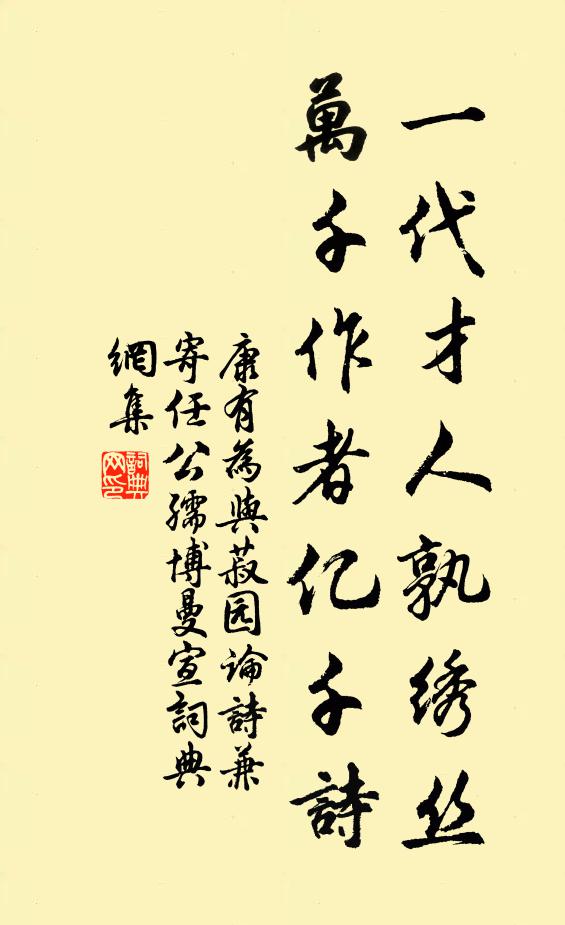 一代才人孰绣丝
萬千作者亿千詩
康有為與菽园論詩兼
寄任公孺博曼宣詞典
網集
詞典網印